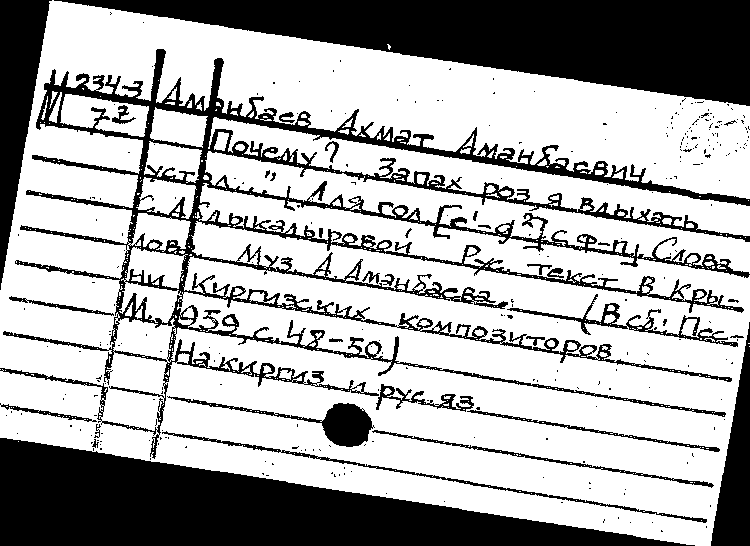 М 234-3
7²
Аманбаев Ахмат Аманбаевич.
Почему? „Запах роз я вдыхать
устал..." [Для гол. [c¹-g²] с ф-п]. Слова
С. Абдыкадыровой. Рус. текст В. Кры-
лова. Муз. А. Аманбаева. (В сб.: Пес-
ни Киргизских композиторов.
М., 1959, с. 48-50)
На киргиз. и рус. яз.